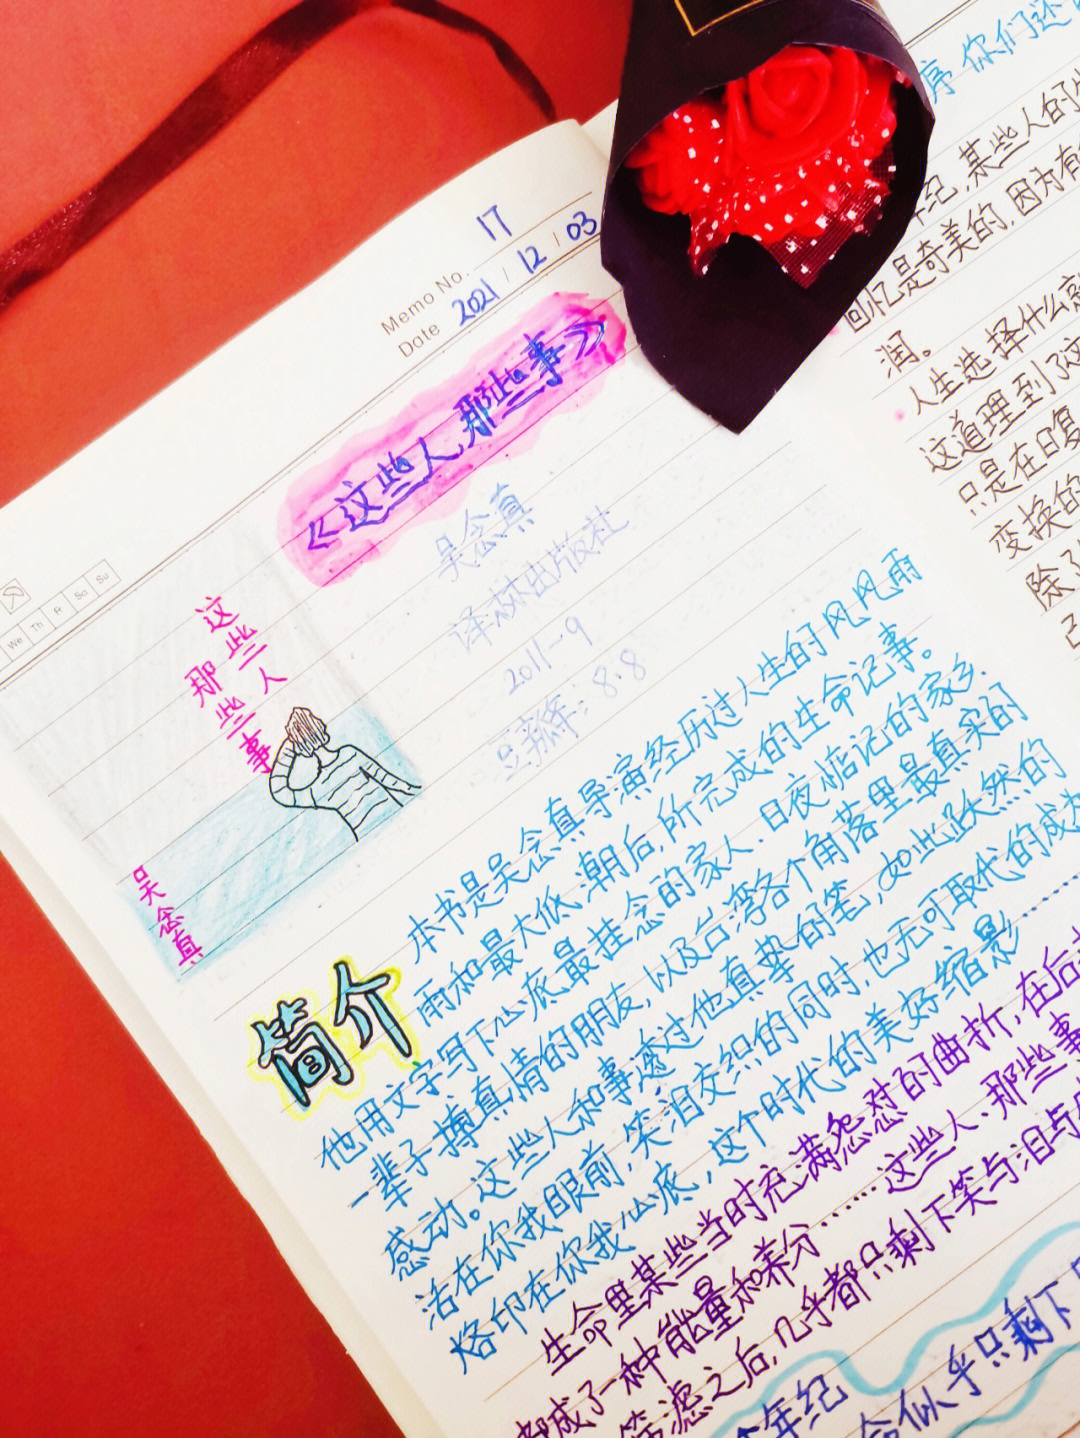 17
Memo No.
Date 2021 / 12 / 03
《这些人,那些事》
吴念真
译林出版社
2011-9
豆瓣:8.8
We Th Fr Sa Su
这些人
那些事
吴念真
简介
本书是吴念真导演经历过人生的风风雨
雨和最大低潮后,所完成的生命记事。
他用文字写下心底最挂念的家人、日夜惦记的家乡、
一辈子搏真情的朋友,以及台湾各个角落里最真实的
感动。这些人和事透过他真挚的笔,如此跃然的
活在你我眼前,笑泪交织的同时,也无可取代的成为
烙印在你我心底,这个时代的美好缩影……
生命里某些当时充满怨怼的曲折,在后
都成了一种能量和养分……这些人、那些事
筛滤之后,几乎都只剩下笑与泪与
个年纪
命似乎只剩下
序 你们还
年纪,某些人的
回忆是奇美的,因为有
润。
人生选择什么
这道理到了
只是在日复
变换的
除了
己